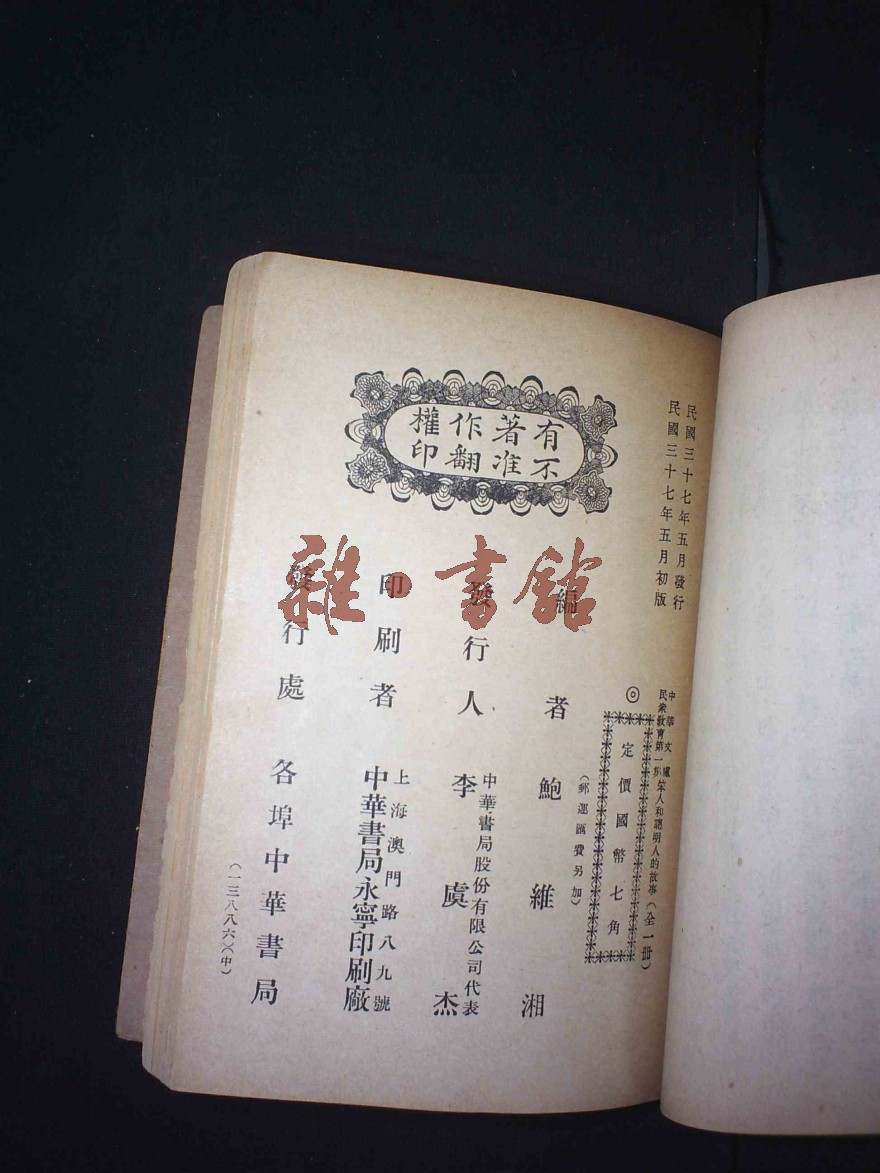 民國三十七年五月發行
民國三十七年五月初版
中華文庫
民衆教育第一集
笨人和聰明人的故事（全一冊）
◎
定價國幣七角
（郵運匯費另加）
有著作權
不准翻印
編者 鮑維湘
發行人 李虞杰
中華書局股份有限公司代表
印刷者
上海澳門路八九號
中華書局永寧印刷廠
發行處 各埠中華書局
（一三八八六）（中）
雜·書館